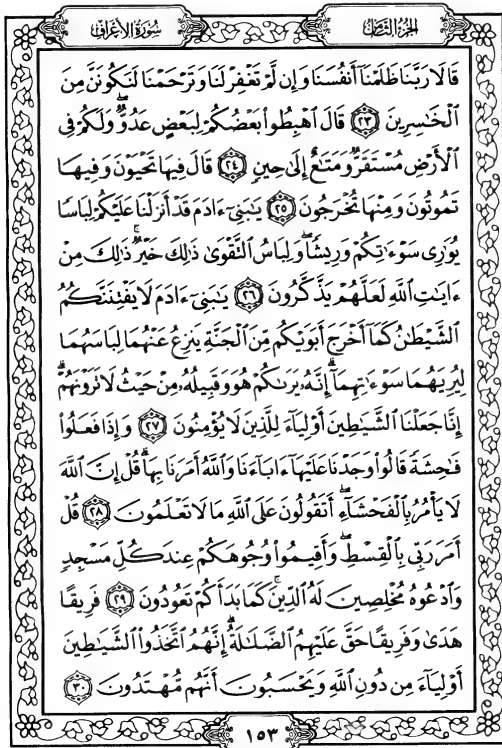 الجزء الثامن سورة الأعراف
قَالَا رَبَّنَا ظَلَمْنَا أَنفُسَنَا وَإِن لَّمْ تَغْفِرْ لَنَا وَتَرْحَمْنَا لَنَكُونَنَّ مِنَ
ٱلْخَـٰسِرِينَ ٢٣ قَالَ ٱهْبِطُوا۟ بَعْضُكُمْ لِبَعْضٍ عَدُوٌّ وَلَكُمْ فِى
ٱلْأَرْضِ مُسْتَقَرٌّ وَمَتَـٰعٌ إِلَىٰ حِينٍ ٢٤ قَالَ فِيهَا تَحْيَوْنَ وَفِيهَا
تَمُوتُونَ وَمِنْهَا تُخْرَجُونَ ٢٥ يَـٰبَنِىٓ ءَادَمَ قَدْ أَنزَلْنَا عَلَيْكُمْ لِبَاسًا
يُوَٰرِى سَوْءَٰتِكُمْ وَرِيشًا ۖ وَلِبَاسُ ٱلتَّقْوَىٰ ذَٰلِكَ خَيْرٌ ۚ ذَٰلِكَ مِنْ
ءَايَـٰتِ ٱللَّهِ لَعَلَّهُمْ يَذَّكَّرُونَ ٢٦ يَـٰبَنِىٓ ءَادَمَ لَا يَفْتِنَنَّكُمُ
ٱلشَّيْطَـٰنُ كَمَآ أَخْرَجَ أَبَوَيْكُم مِّنَ ٱلْجَنَّةِ يَنزِعُ عَنْهُمَا لِبَاسَهُمَا
لِيُرِيَهُمَا سَوْءَٰتِهِمَآ ۗ إِنَّهُۥ يَرَىٰكُمْ هُوَ وَقَبِيلُهُۥ مِنْ حَيْثُ لَا تَرَوْنَهُمْ ۗ
إِنَّا جَعَلْنَا ٱلشَّيَـٰطِينَ أَوْلِيَآءَ لِلَّذِينَ لَا يُؤْمِنُونَ ٢٧ وَإِذَا فَعَلُوا۟
فَـٰحِشَةً قَالُوا۟ وَجَدْنَا عَلَيْهَآ ءَابَآءَنَا وَٱللَّهُ أَمَرَنَا بِهَا ۗ قُلْ إِنَّ ٱللَّهَ
لَا يَأْمُرُ بِٱلْفَحْشَآءِ ۖ أَتَقُولُونَ عَلَى ٱللَّهِ مَا لَا تَعْلَمُونَ ٢٨ قُلْ
أَمَرَ رَبِّى بِٱلْقِسْطِ ۖ وَأَقِيمُوا۟ وُجُوهَكُمْ عِندَ كُلِّ مَسْجِدٍ
وَٱدْعُوهُ مُخْلِصِينَ لَهُ ٱلدِّينَ ۚ كَمَا بَدَأَكُمْ تَعُودُونَ ٢٩ فَرِيقًا
هَدَىٰ وَفَرِيقًا حَقَّ عَلَيْهِمُ ٱلضَّلَـٰلَةُ ۗ إِنَّهُمُ ٱتَّخَذُوا۟ ٱلشَّيَـٰطِينَ
أَوْلِيَآءَ مِن دُونِ ٱللَّهِ وَيَحْسَبُونَ أَنَّهُم مُّهْتَدُونَ ٣٠
١٥٣